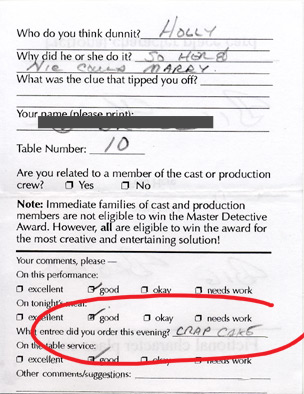 Who do you think dunnit? HOLLY
Why did he or she do it? SO HER &
NIC COULD MARRY.
What was the clue that tipped you off?
Your name (please print):
Table Number: 10
Are you related to a member of the cast or production
crew? ☐ Yes ☐ No
Note: Immediate families of cast and production
members are not eligible to win the Master Detective
Award. However, all are eligible to win the award for
the most creative and entertaining solution!
Your comments, please —
On this performance:
☐ excellent ☑ good ☐ okay ☐ needs work
On tonight's meal:
☐ excellent ☑ good ☐ okay ☐ needs work
What entree did you order this evening? CRAP CAKE
On the table service:
☐ excellent ☑ good ☐ okay ☐ needs work
Other comments/suggestions: